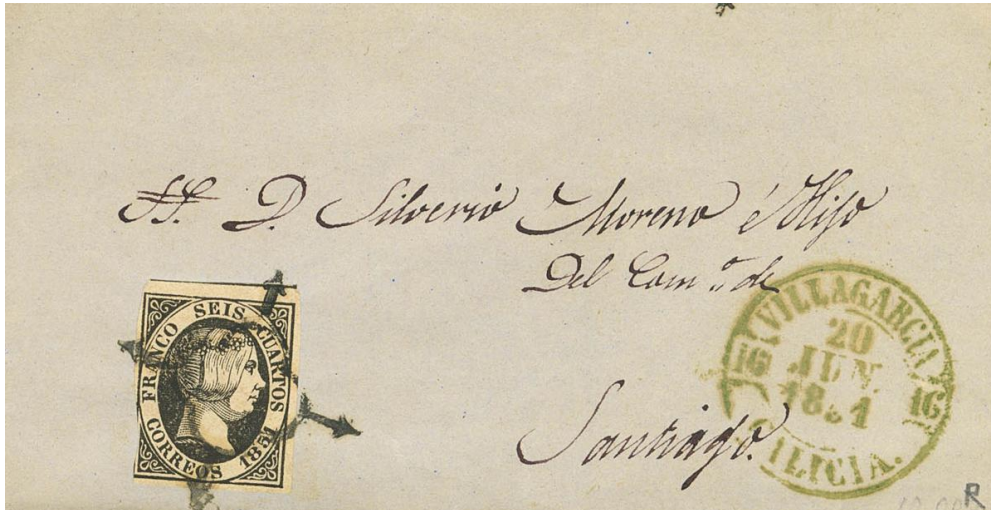 SS. D. Silverio Moreno é Hijo
Del Com.º de
Santiago.
FRANCO SEIS CUARTOS
CORREOS 1851
VILLAGARCIA
20
JUN.
1851
16
16
GALICIA.
R